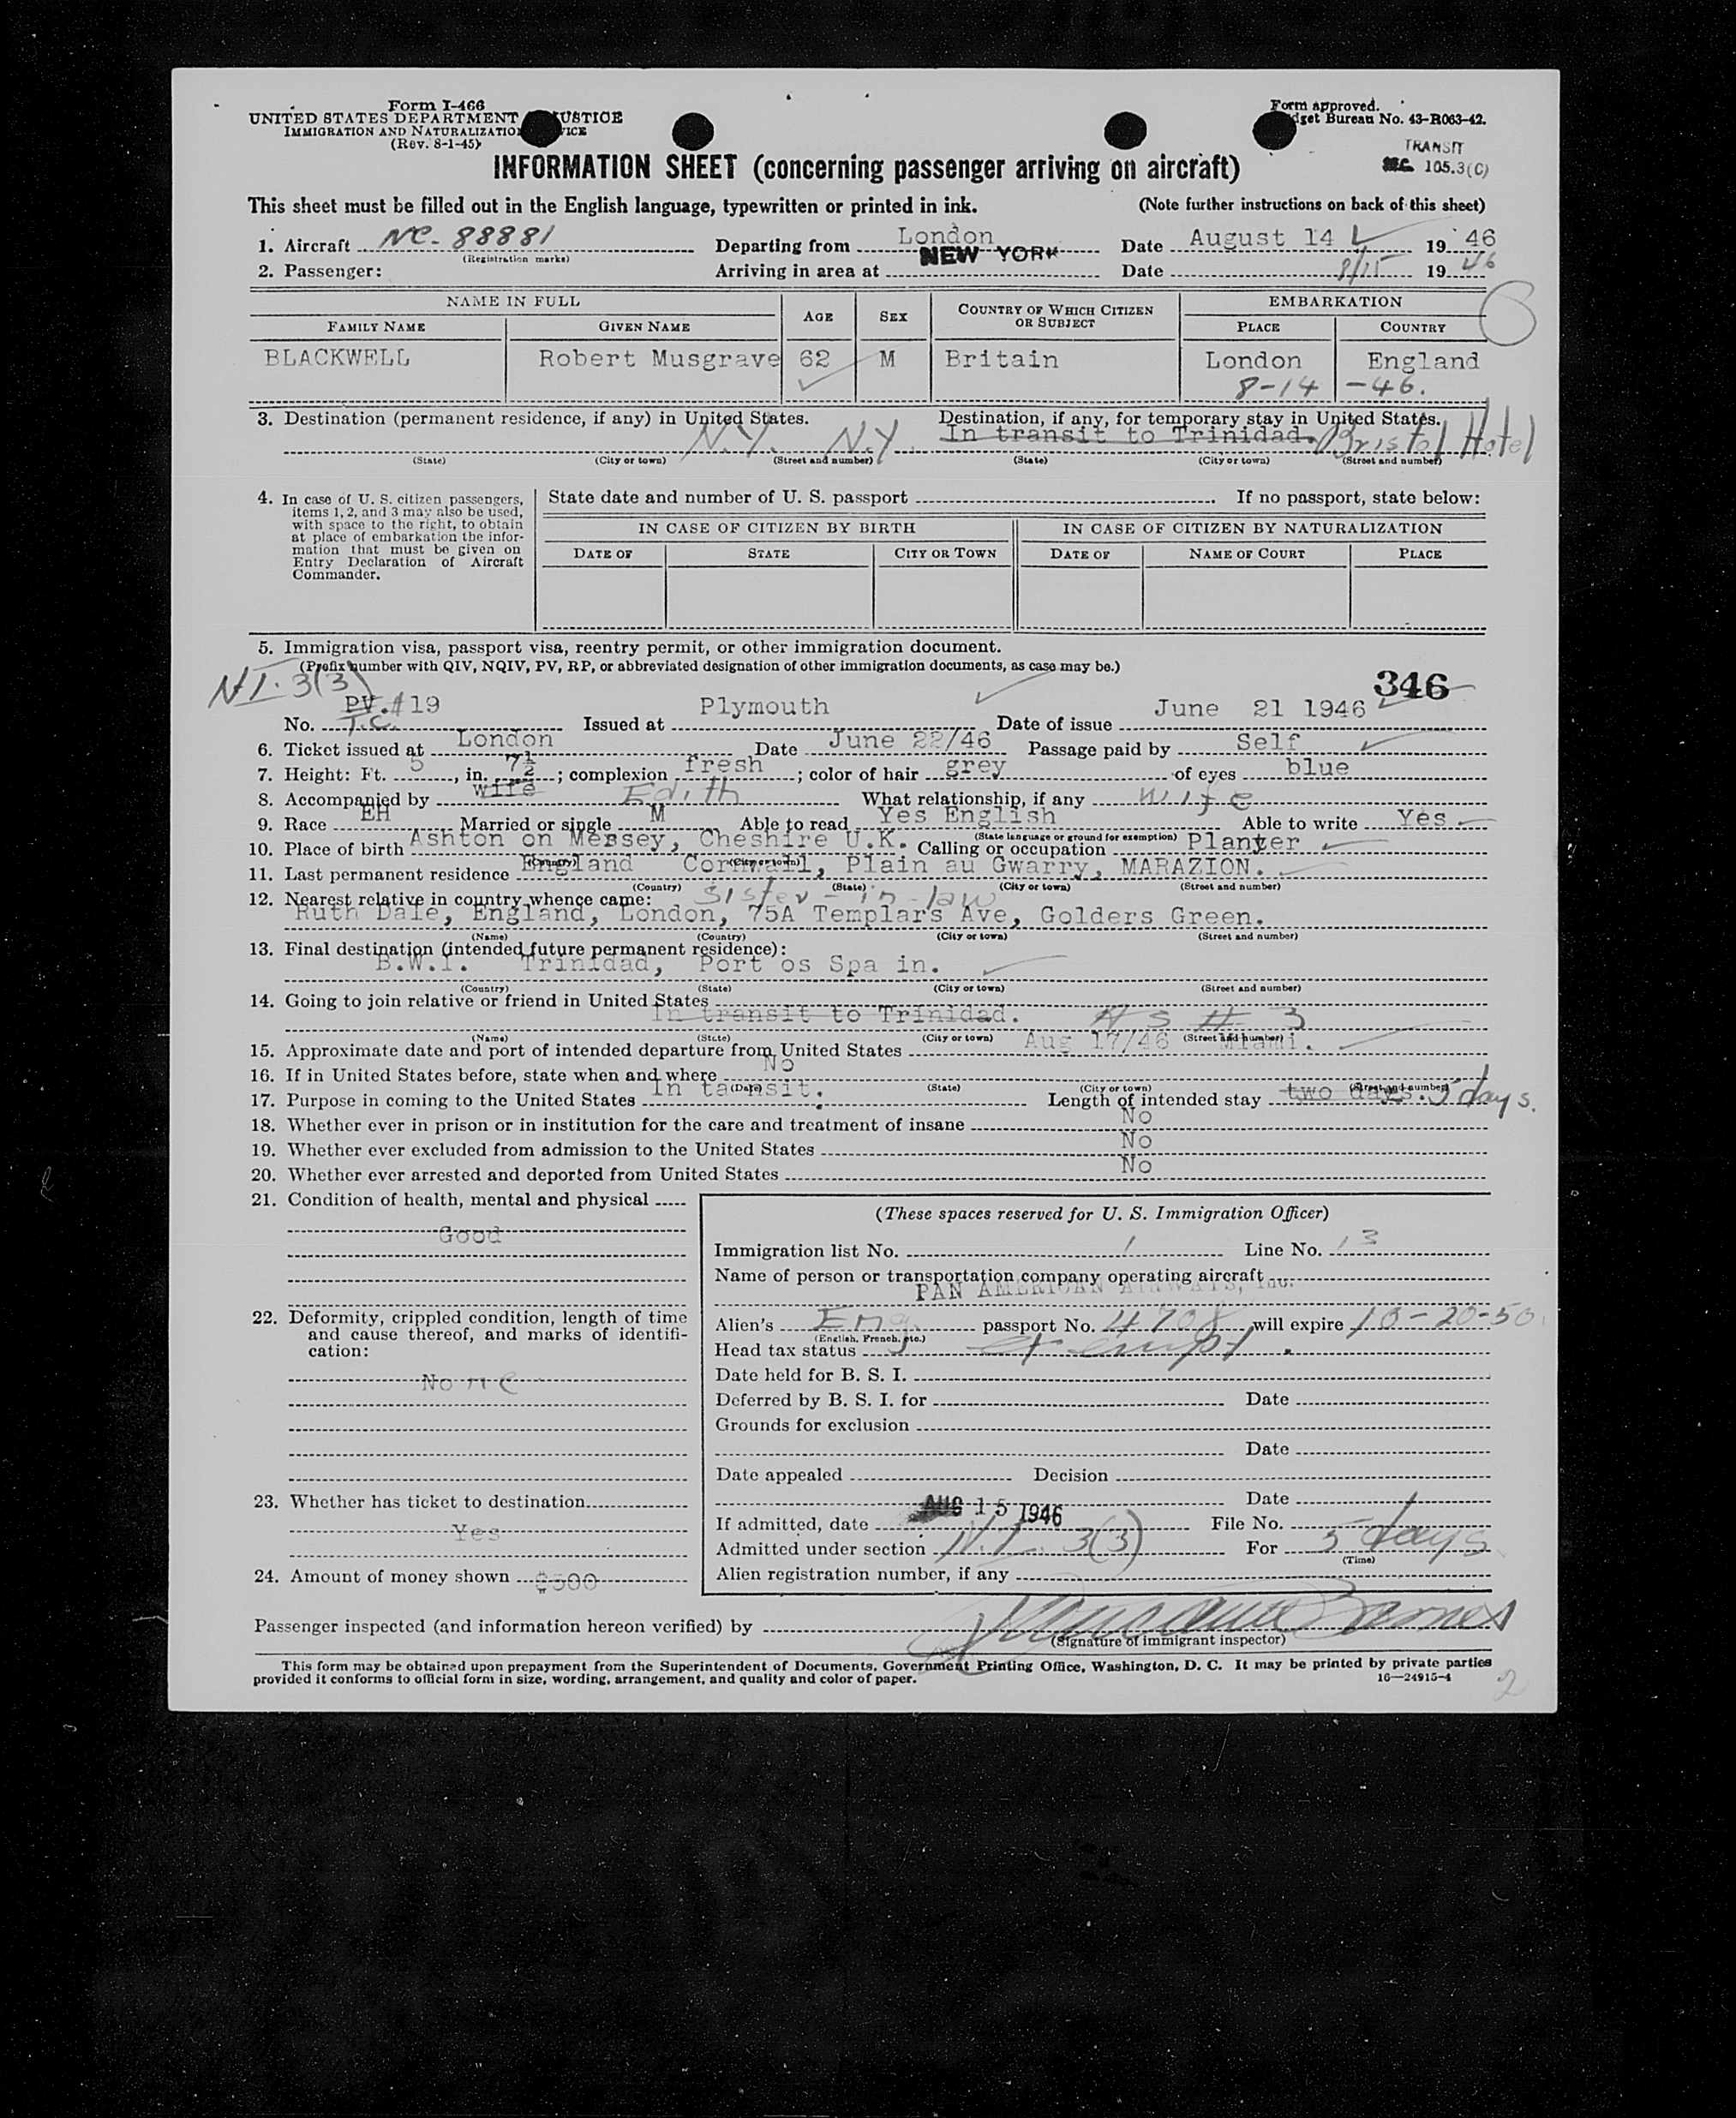 Form I-466
UNITED STATES DEPARTMENT USTICE
IMMIGRATION AND NATURALIZATIO VICE
(Rev. 8-1-45)
Form approved.
dget Bureau No. 43-R063-42.
TRANSIT
SEC. 105.3(C)
INFORMATION SHEET (concerning passenger arriving on aircraft)
This sheet must be filled out in the English language, typewritten or printed in ink. (Note further instructions on back of this sheet)
1. Aircraft NC-88881 Departing from London Date August 14 1946
(Registration marks)
2. Passenger: Arriving in area at NEW YORK Date 8/15 1946
NAME IN FULL AGE SEX COUNTRY OF WHICH CITIZEN OR SUBJECT EMBARKATION
FAMILY NAME GIVEN NAME PLACE COUNTRY
BLACKWELL Robert Musgrave 62 M Britain London England
8-14 -46.
3. Destination (permanent residence, if any) in United States. Destination, if any, for temporary stay in United States.
N.Y. N.Y. In transit to Trinidad. Bristol Hotel
(State) (City or town) (Street and number) (State) (City or town) (Street and number)
4. In case of U. S. citizen passengers, items 1, 2, and 3 may also be used, with space to the right, to obtain at place of embarkation the information that must be given on Entry Declaration of Aircraft Commander.
State date and number of U. S. passport . If no passport, state below:
IN CASE OF CITIZEN BY BIRTH IN CASE OF CITIZEN BY NATURALIZATION
DATE OF STATE CITY OR TOWN DATE OF NAME OF COURT PLACE
5. Immigration visa, passport visa, reentry permit, or other immigration document.
(Prefix number with QIV, NQIV, PV, RP, or abbreviated designation of other immigration documents, as case may be.)
NI. 3(3) 346
No. PV.#19 T.C. Issued at Plymouth Date of issue June 21 1946
6. Ticket issued at London Date June 22/46 Passage paid by Self
7. Height: Ft. 5, in. 7½; complexion fresh; color of hair grey of eyes blue
8. Accompanied by wife Edith What relationship, if any wife
9. Race EH Married or single M Able to read Yes English Able to write Yes
(State language or ground for exemption)
10. Place of birth Ashton on Messey, Cheshire U.K. Calling or occupation Planter
(Country) (City or town)
11. Last permanent residence England Cornwall, Plain au Gwarry, MARAZION.
(Country) (State) (City or town) (Street and number)
12. Nearest relative in country whence came: sister-in-law
Ruth Dale, England, London, 75A Templars Ave, Golders Green.
(Name) (Country) (City or town) (Street and number)
13. Final destination (intended future permanent residence):
B.W.I. Trinidad, Port os Spa in.
(Country) (State) (City or town) (Street and number)
14. Going to join relative or friend in United States
In transit to Trinidad. # 3
(Name) (State) (City or town) (Street and number)
15. Approximate date and port of intended departure from United States Aug 17/46 Miami.
16. If in United States before, state when and where No
(Date) (State) (City or town) (Street and number)
17. Purpose in coming to the United States In tansit. Length of intended stay two days. 5 days.
18. Whether ever in prison or in institution for the care and treatment of insane No
19. Whether ever excluded from admission to the United States No
20. Whether ever arrested and deported from United States No
21. Condition of health, mental and physical
Good
22. Deformity, crippled condition, length of time and cause thereof, and marks of identification:
None
23. Whether has ticket to destination
Yes
24. Amount of money shown $300
(These spaces reserved for U. S. Immigration Officer)
Immigration list No. 1 Line No. 13
Name of person or transportation company operating aircraft
PAN AMERICAN AIRWAYS, Inc.
Alien's Eng. passport No. 4708 will expire 10-20-50
(English, French, etc.)
Head tax status exempt.
Date held for B. S. I.
Deferred by B. S. I. for Date
Grounds for exclusion
Date
Date appealed Decision
Date
If admitted, date AUG 15 1946 File No.
Admitted under section N.I. 3(3) For 5 days
(Time)
Alien registration number, if any
Passenger inspected (and information hereon verified) by Barnes
(Signature of immigrant inspector)
This form may be obtained upon prepayment from the Superintendent of Documents, Government Printing Office, Washington, D. C. It may be printed by private parties
provided it conforms to official form in size, wording, arrangement, and quality and color of paper. 16—24915-4
2